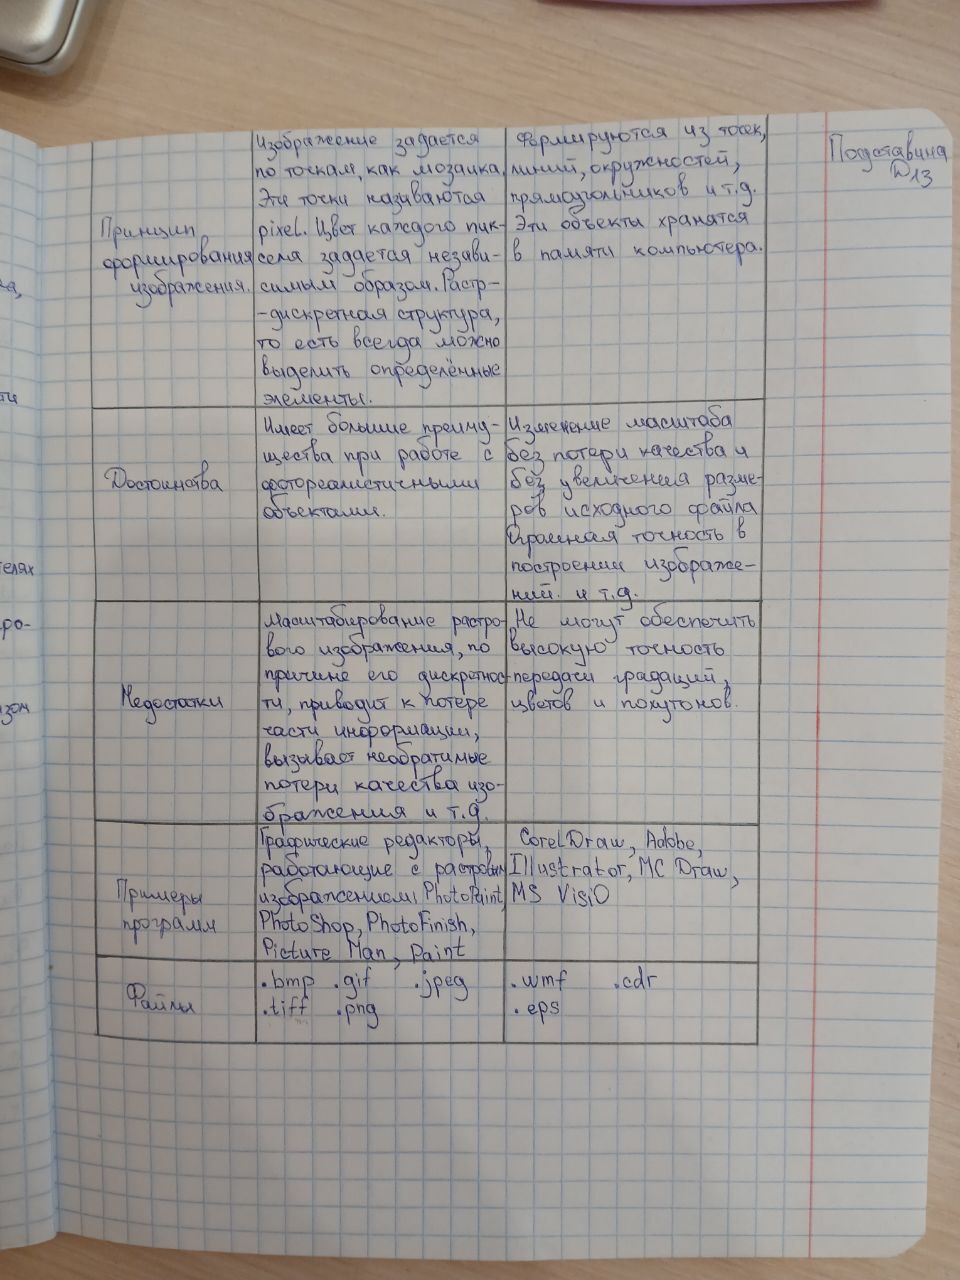 Изображение задается
по точкам, как мозаика.
Эти точки называются
pixel. Цвет каждого пик-
селя задается незави-
симым образом. Растр-
-дискретная структура,
то есть всегда можно
выделить определённые
элементы.
формируются из точек,
линий, окружностей,
прямоугольников и т.д.
Эти объекты хранятся
в памяти компьютера.
Подставина
Принцип
формирования
изображения.
Достоинства
Имеет большие преиму-
щества при работе с
фотореалистичными
объектами.
Изменение масштаба
без потери качества и
без увеличения разме-
ров исходного файла
Огромная точность в
построении изображе-
ний. и т.д.
Недостатки
Масштабирование растро-
вого изображения, по
причине его дискретнос-
ти, приводит к потере
части информации,
вызывает необратимые
потери качества изо-
бражения и т.д.
Не могут обеспечить
высокую точность
передачи градаций,
цветов и полутонов.
Примеры
программ
Графические редакторы,
работающие с растровым
изображением: PhotoPaint,
PhotoShop, PhotoFinish,
Picture Man, Paint
CorelDraw, Adobe,
Illustrator, MC Draw,
MS VisiO
Файлы
.bmp .gif .jpeg
.tiff .png
.wmf .cdr
.eps
елях
ро-